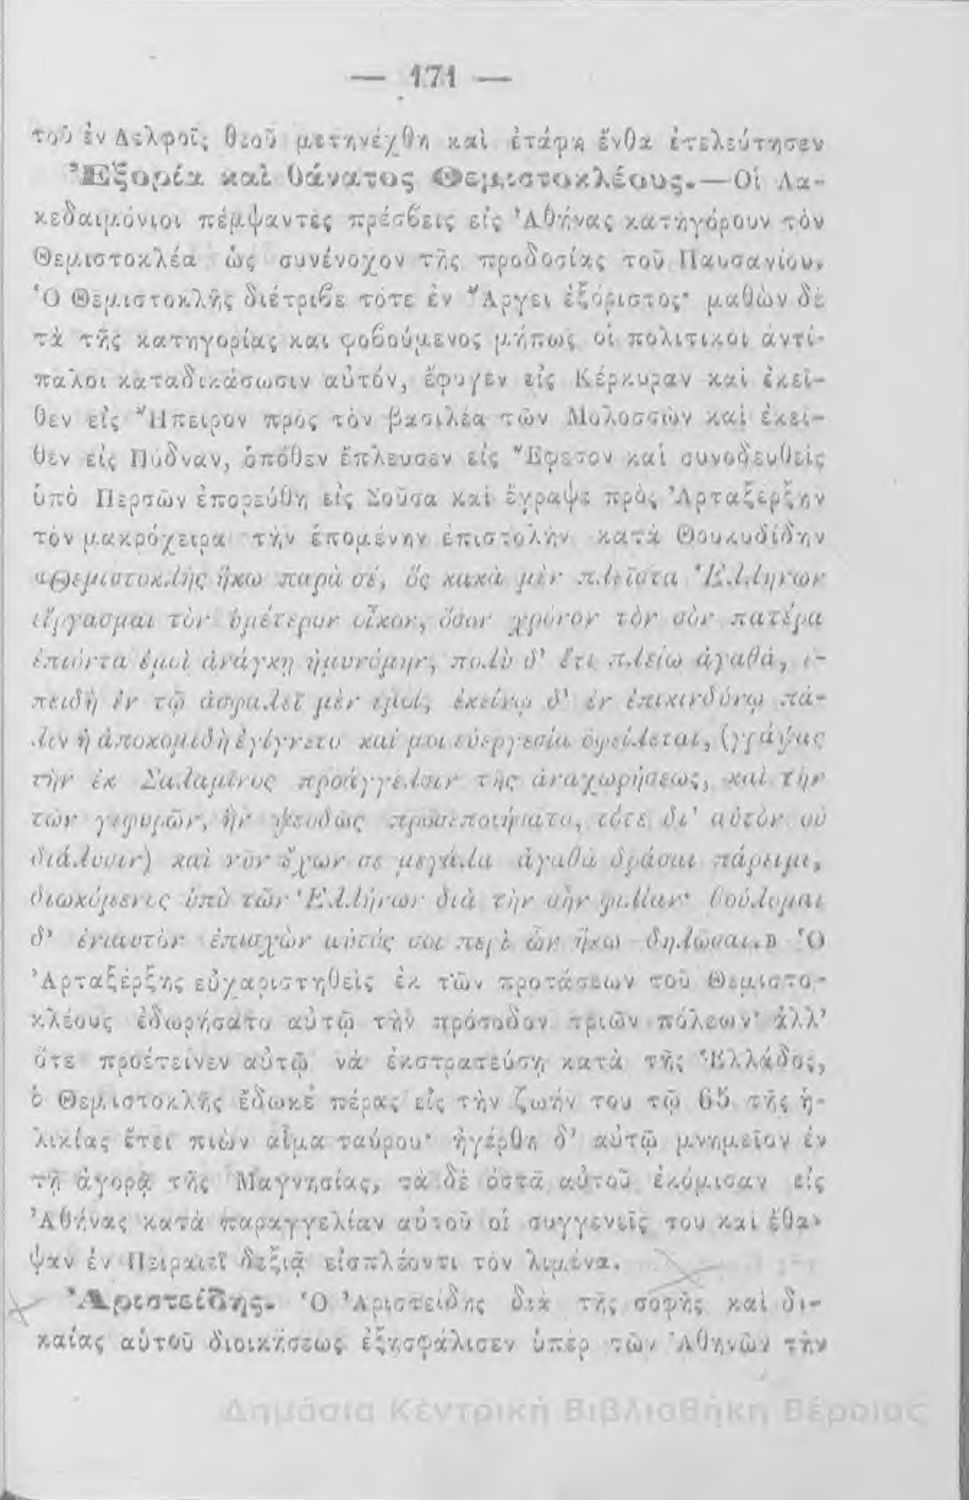 — 171 —
τοῦ ἐν Δελφοῖς θεοῦ μετηνέχθη καὶ ἐτάφη ἔνθα ἐτελεύτησεν
Ἐξορία καὶ θάνατος Θεμιστοκλέους.—Οἱ Λα-
κεδαιμόνιοι πέμψαντες πρέσβεις εἰς Ἀθήνας κατηγόρουν τὸν
Θεμιστοκλέα ὡς συνένοχον τῆς προδοσίας τοῦ Παυσανίου.
Ὁ Θεμιστοκλῆς διέτριβε τότε ἐν Ἄργει ἐξόριστος· μαθὼν δὲ
τὰ τῆς κατηγορίας και φοβούμενος μήπως οἱ πολιτικοι ἀντί-
παλοι καταδικάσωσιν αὐτόν, ἔφυγεν εἰς Κέρκυραν καὶ ἐκεῖ-
θεν εἰς Ἤπειρον πρὸς τὸν βασιλέα τῶν Μολοσσῶν καὶ ἐκεῖ-
θεν εἰς Πύδναν, ὁπόθεν ἔπλευσεν εἰς Ἔφεσον καὶ συνοδευθεὶς
ὑπὸ Περσῶν ἐπορεύθη εἰς Σοῦσα καὶ ἔγραψε πρὸς Ἀρταξέρξην
τὸν μακρόχειρα τὴν ἑπομένην ἐπιστολὴν κατὰ Θουκυδίδην
«Θεμιστοκλῆς ἥκω παρὰ σέ, ὃς κακὰ μὲν πλεῖστα Ἑλλήνων
εἴργασμαι τὸν ὑμέτερον οἶκον, ὅσον χρόνον τὸν σὸν πατέρα
ἐπιόντα ἐμοὶ ἀνάγκῃ ἠμυνόμην, πολὺ δ' ἔτι πλείω ἀγαθά, ἐ-
πειδὴ ἐν τῷ ἀσφαλεῖ μὲν ἐμοί, ἐκείνῳ δ' ἐν ἐπικινδύνῳ πά-
λιν ἡ ἀποκομιδὴ ἐγίγνετο καί μοι εὐεργεσία ὀφείλεται, (γράψας
τὴν ἐκ Σαλαμῖνος προάγγελσιν τῆς ἀναχωρήσεως, καὶ τὴν
τῶν γεφυρῶν, ἣν ψευδῶς προσεποιήσατο, τότε δι' αὐτὸν οὐ
διάλυσιν) καὶ νῦν ἔχων σε μεγάλα ἀγαθὰ δρᾶσαι πάρειμι,
διωκόμενος ὑπὸ τῶν Ἑλλήνων διὰ τὴν σὴν φιλίαν· βούλομαι
δ' ἐνιαυτὸν ἐπισχὼν αὐτός σοι περὶ ὧν ἥκω δηλῶσαι.» Ὁ
Ἀρταξέρξης εὐχαριστηθεὶς ἐκ τῶν προτάσεων τοῦ Θεμιστο-
κλέους ἐδωρήσατο αὐτῷ τὴν πρόσοδον τριῶν πόλεων· ἀλλ'
ὅτε προέτεινεν αὐτῷ νὰ ἐκστρατεύσῃ κατὰ τῆς Ἑλλάδος,
ὁ Θεμιστοκλῆς ἔδωκε πέρας εἰς τὴν ζωήν του τῷ 65 τῆς ἡ-
λικίας ἔτει πιὼν αἷμα ταύρου· ἠγέρθη δ' αὐτῷ μνημεῖον ἐν
τῇ ἀγορᾷ τῆς Μαγνησίας, τὰ δὲ ὀστᾶ αὐτοῦ ἐκόμισαν εἰς
Ἀθήνας κατὰ παραγγελίαν αὐτοῦ οἱ συγγενεῖς του καὶ ἔθα-
ψαν ἐν Πειραιεῖ δεξιᾷ εἰσπλέοντι τὸν λιμένα.
Ἀριστείδης. Ὁ Ἀριστείδης διὰ τῆς σοφῆς καὶ δι-
καίας αὐτοῦ διοικήσεως ἐξησφάλισεν ὑπὲρ τῶν Ἀθηνῶν τὴν
Δημόσια Κεντρική Βιβλιοθήκη Βέροιας